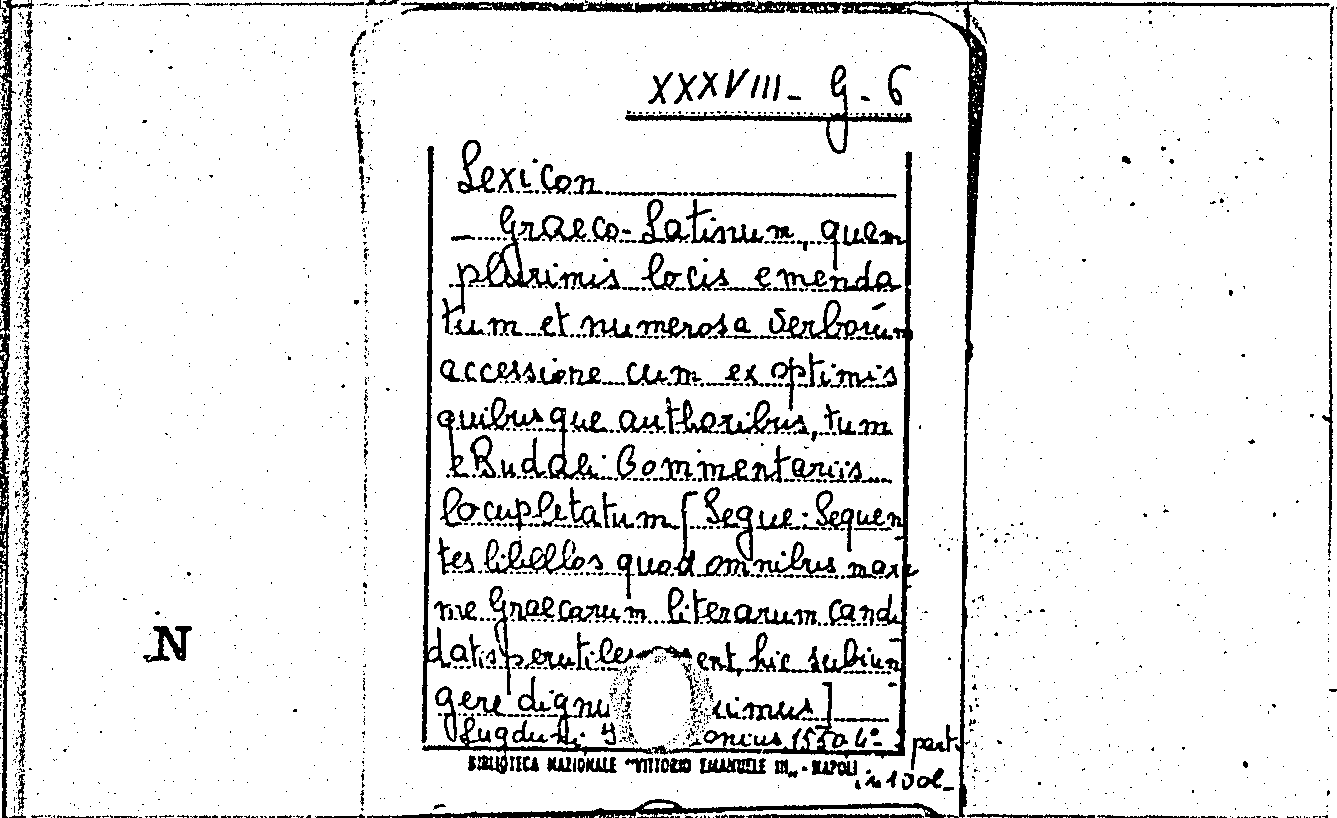 XXXVIII - G - 6
Lexicon
- Graeco-Latinum, quam
plurimis locis emenda
tum et numerosa verborum
accessione cum ex optimis
quibusque authoribus, tum
e Budaei Commentariis
locupletatum [Segue: Sequen
tes libellos quod omnibus maxi
me Graecarum literarum candi
datis perutiles ent, hic subiun
gere dignu uimus]
Lugduni, onius, 1550 4° part.
in 1 vol.
BIBLIOTECA NAZIONALE "VITTORIO EMANUELE III" - NAPOLI
N